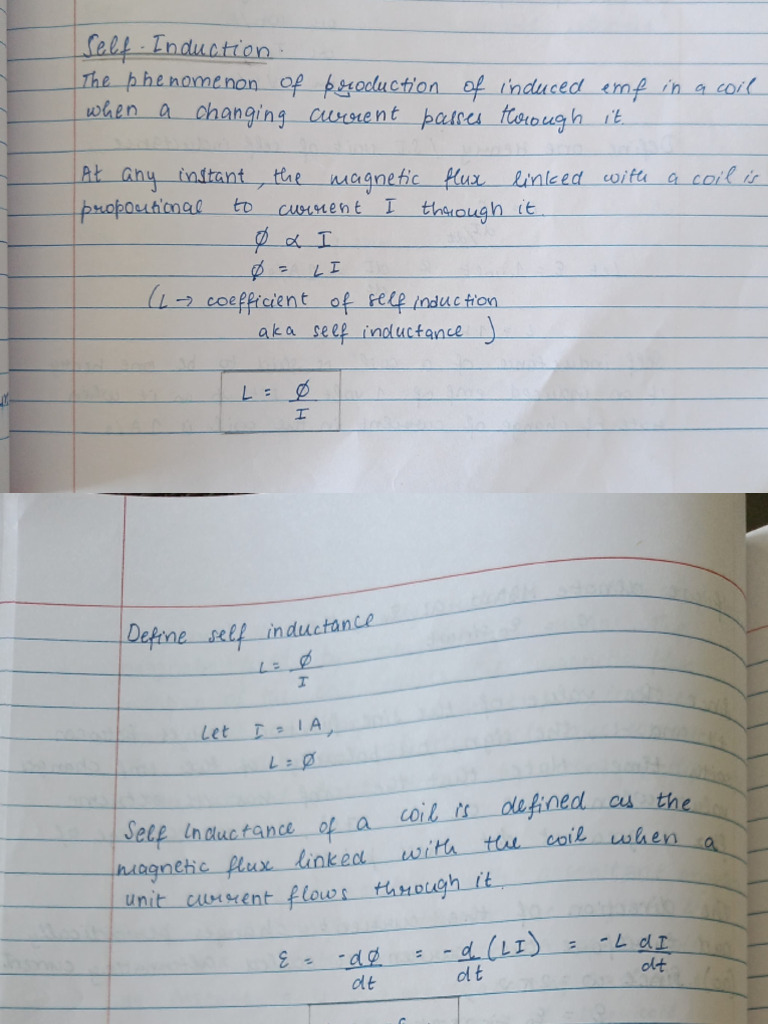 Self-Induction.
The phenomenon of production of induced emf in a coil
when a changing current passes through it.
At any instant, the magnetic flux linked with a coil is
propoutional to current I through it.
Ø ∝ I
Ø = LI
(L → coefficient of self induction
aka self inductance)
L = Ø/I
Define self inductance
L = Ø/I
Let I = 1A,
L = Ø
Self Inductance of a coil is defined as the
magnetic flux linked with the coil when a
unit current flows through it.
ε = -dØ/dt = -d/dt (LI) = -L dI/dt